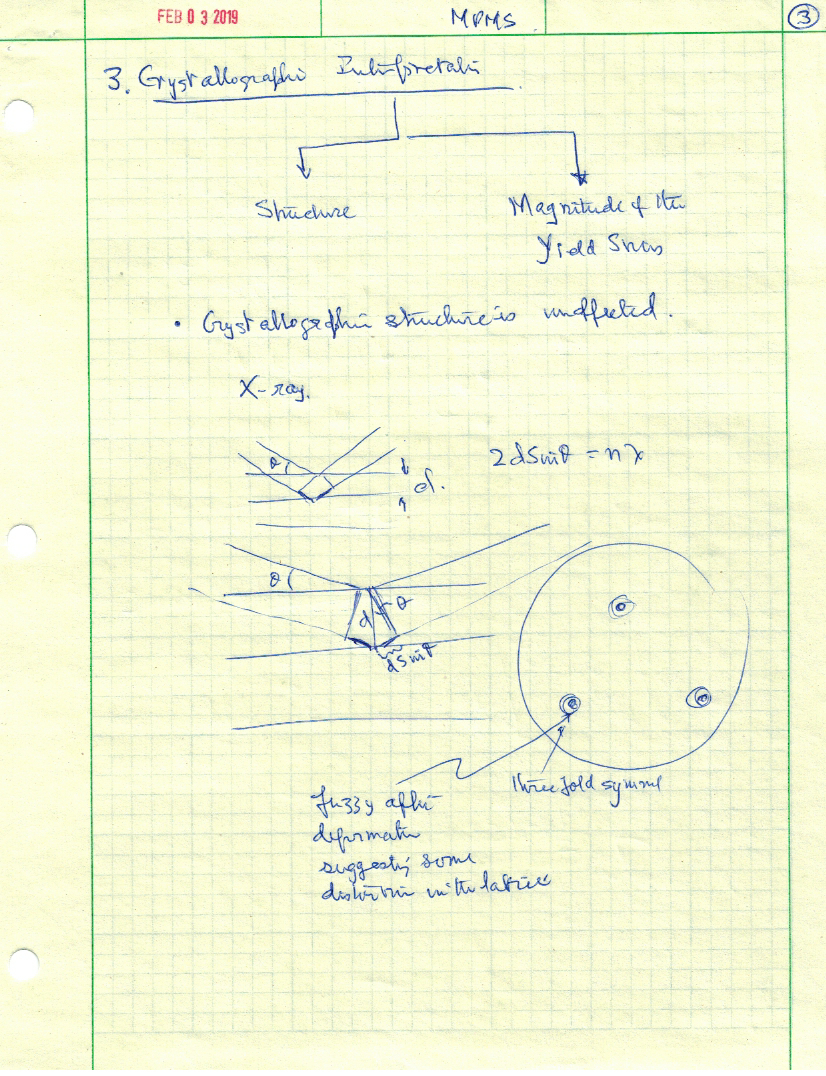 FEB 03 2019
MPMS
3
3. Crystallographic Interpretation
Structure
Magnitude of the
Yield Stress
• Crystallographic structure is unaffected.
X-ray.
θ
d.
2dSinθ = nλ
θ
d
θ
dSinθ
three fold symme
fuzzy after
deformation
suggesting some
distortion in the lattice